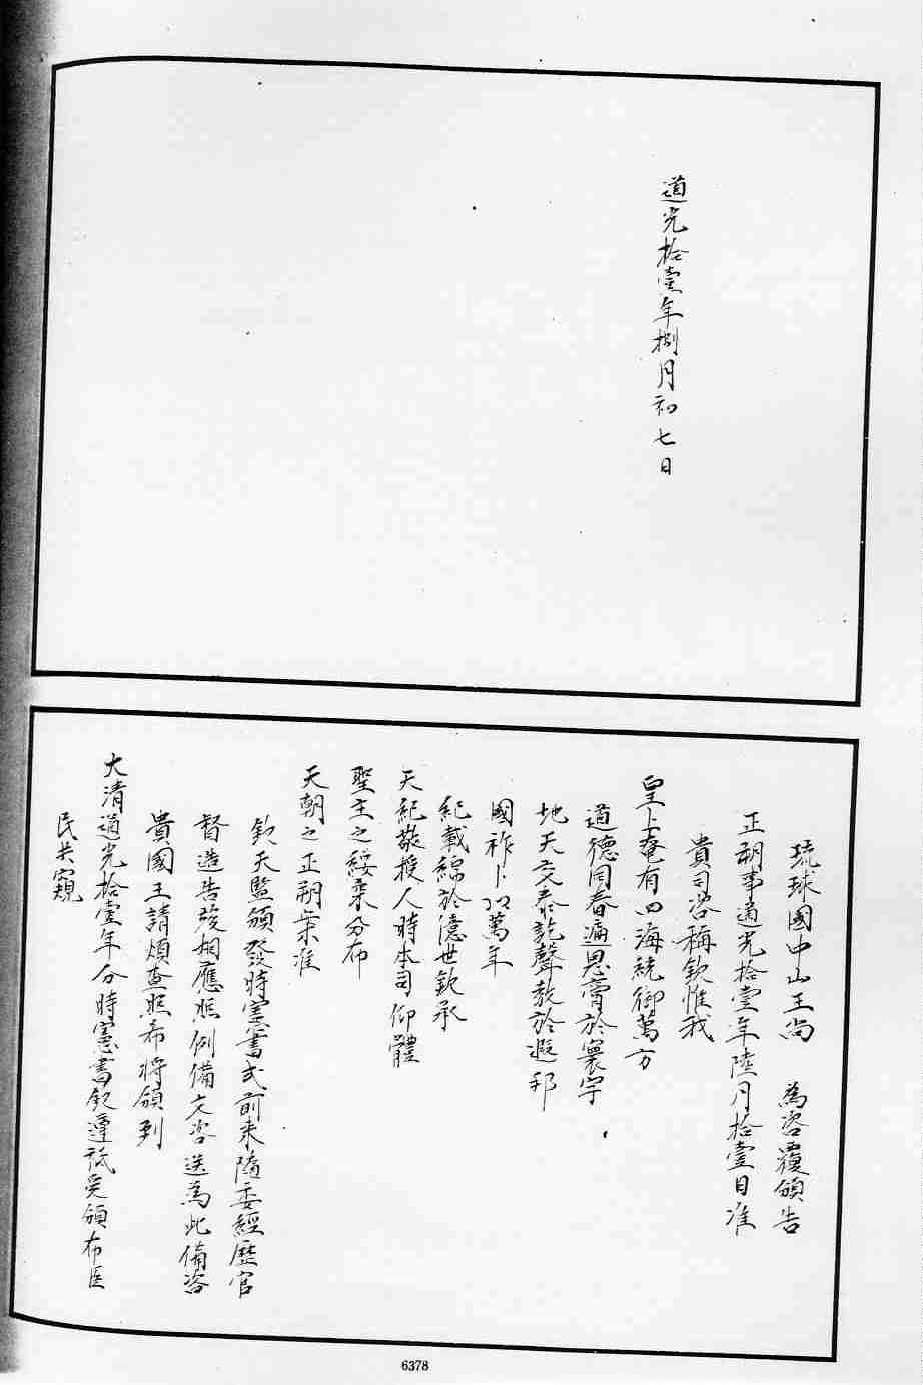 道光拾壹年捌月初七日
琉球國中山王尚　為咨覆頒告
正朔事道光拾壹年陸月拾壹日准
貴司咨稱欽惟我
皇上奄有四海統御萬方
道德同春遍恩膏於寰宇
地天交泰訖聲教於遐邦
國祚卜億萬年
紀載綿於億世欽承
天紀敬授人時本司仰體
聖主之綏柔分布
天朝之正朔業准
欽天監頒發時憲書式前來隨委經歷官
督造告竣相應照例備文咨送為此備咨
貴國王請煩查照希將頒到
大清道光拾壹年分時憲書欽遵祗受頒布臣
民共窺
6378